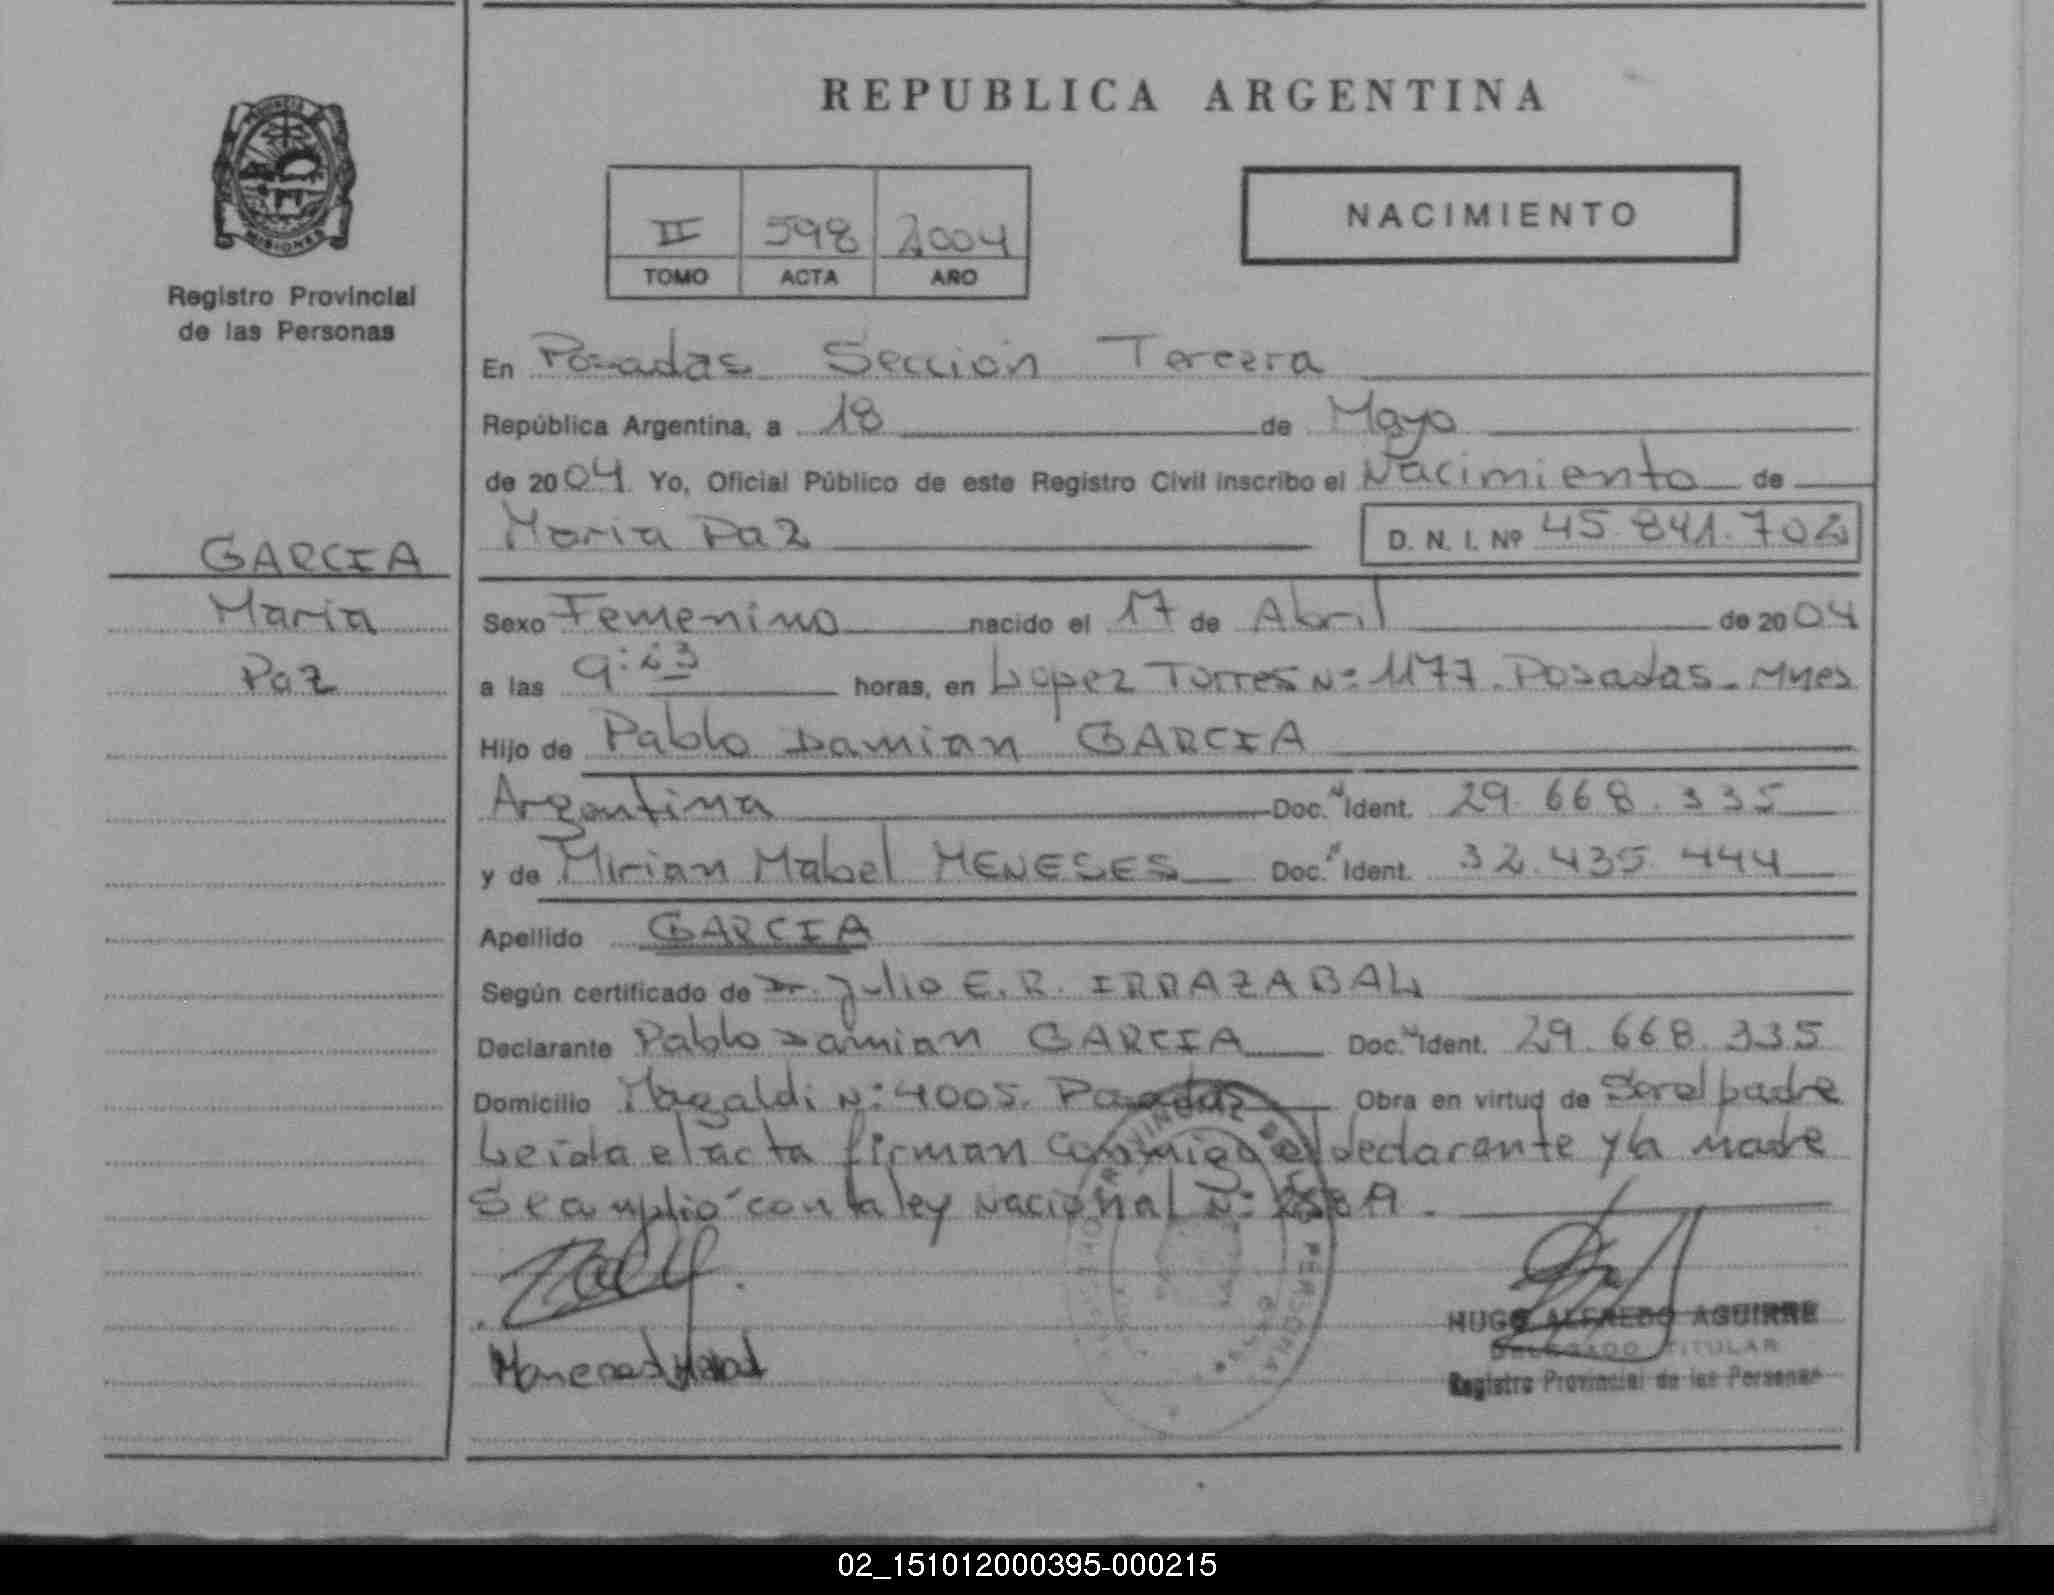 REPUBLICA ARGENTINA
PROVINCIA
MISIONES
Registro Provincial
de las Personas
II 598 2004
TOMO ACTA AÑO
NACIMIENTO
En Posadas Sección Tercera
República Argentina, a 18 de Mayo
de 2004 Yo, Oficial Público de este Registro Civil inscribo el Nacimiento de
Maria Paz D. N. I. Nº 45.841.702
GARCIA
Maria
Paz
Sexo Femenino nacido el 17 de Abril de 2004
a las 9:23 horas, en Lopez Torres Nº 1177. Posadas - Mnes
Hijo de Pablo Damian GARCIA
Argentina Doc. Ident. 29.668.335
y de Mirian Mabel MENESES Doc. Ident. 32.435.444
Apellido GARCIA
Según certificado de Dr. Julio E. R. IRRAZABAL
Declarante Pablo Damian GARCIA Doc. Ident. 29.668.335
Domicilio Magaldi Nº 4005. Posadas Obra en virtud de Ser el padre
Leída el acta firman conmigo el declarante y la madre
Se amplió con la ley Nacional Nº
Meneses Mabel
HUGO ALFREDO AGUIRRE
DELEGADO TITULAR
Registro Provincial de las Personas
02_151012000395-000215